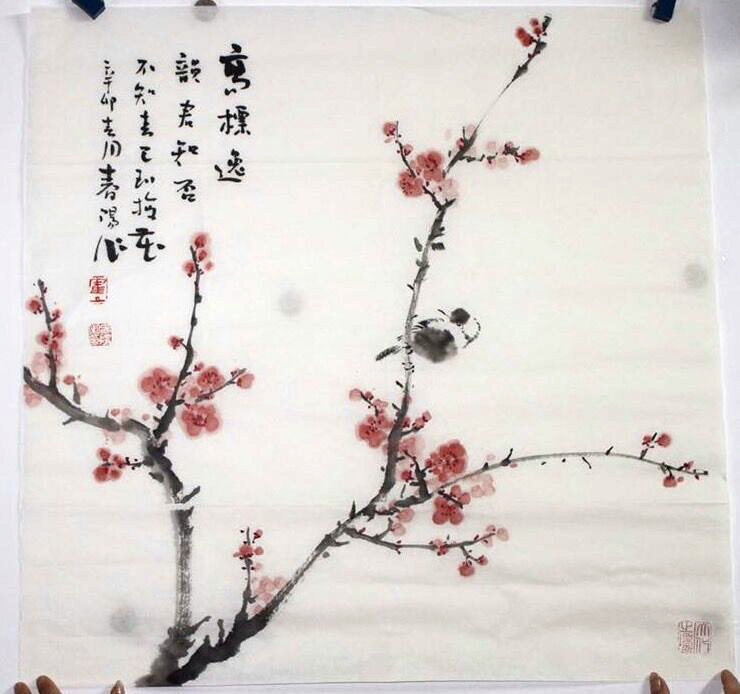 高標逸
韻君知否
不知春已到梅花
辛卯春月春湯作